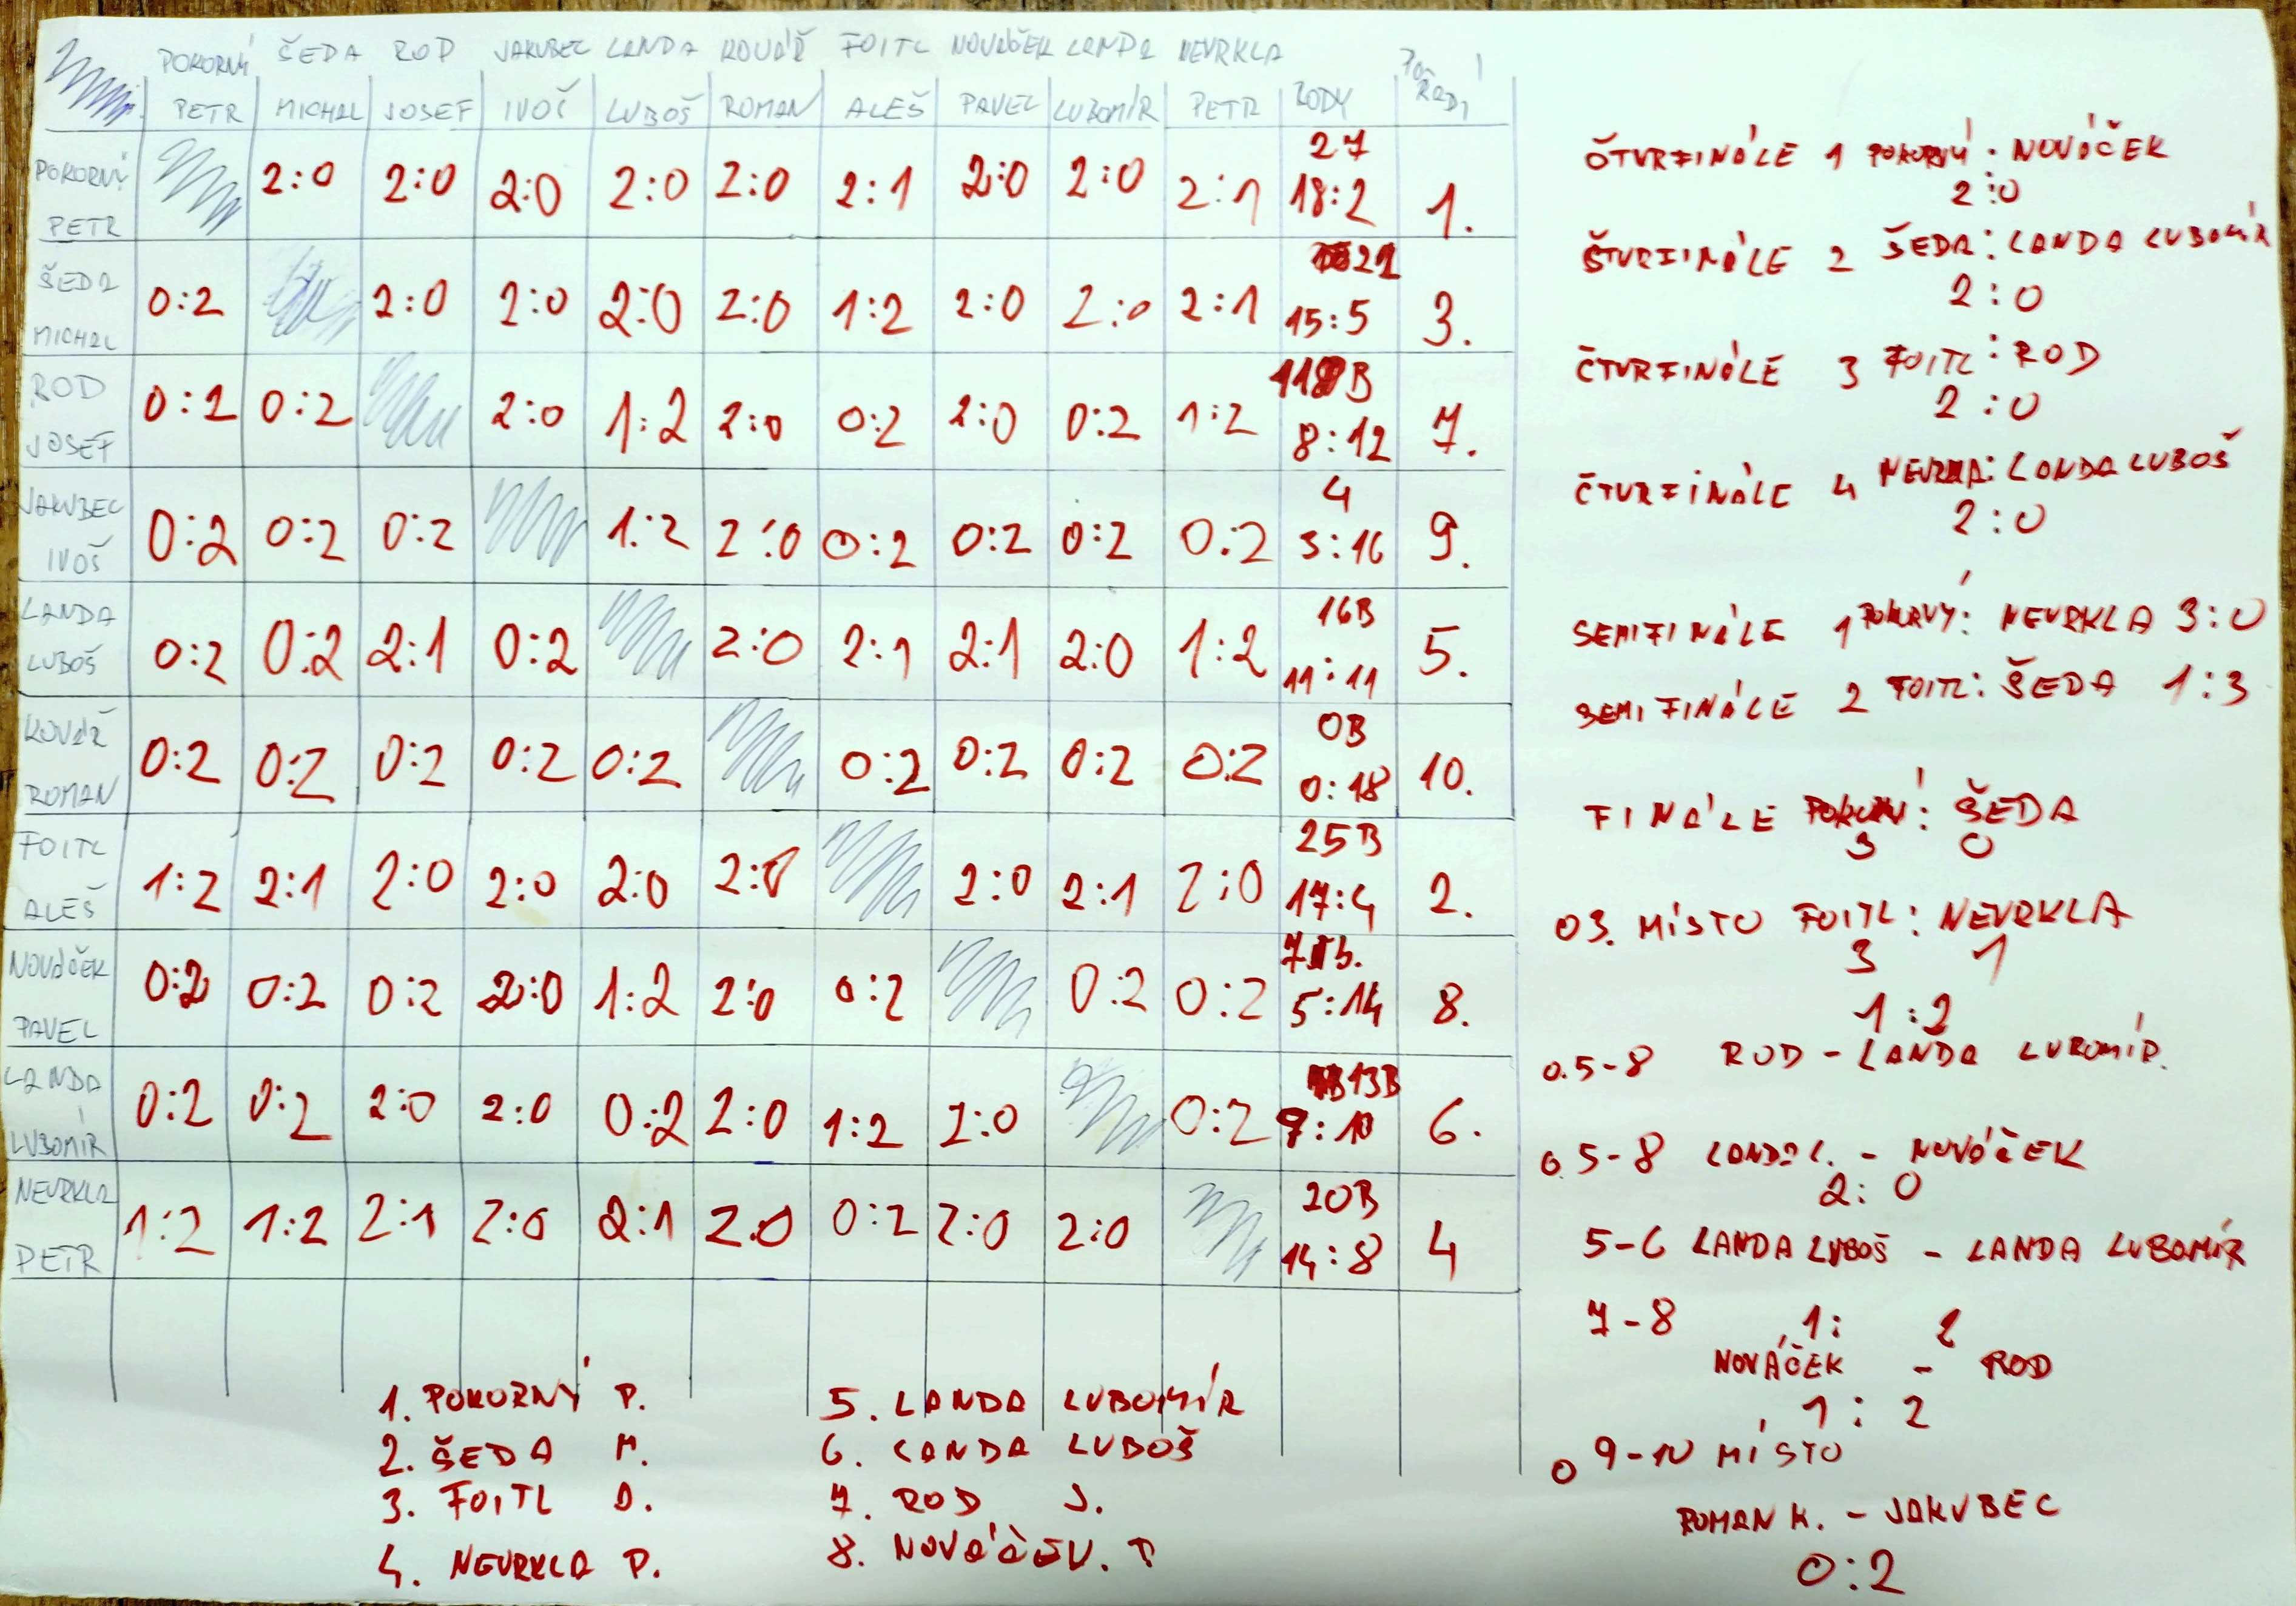 POKORNÝ ŠEDA ROD JAKUBEC LANDA KOVÁŘ FOITL NOVÁČEK LANDA NEVRKLA POŘADÍ
PETR MICHAL JOSEF IVOŠ LUBOŠ ROMAN ALEŠ PAVEL LUBOMÍR PETR BODY
POKORNÝ 27
2:0 2:0 2:0 2:0 2:0 2:1 2:0 2:0 2:1 18:2 1.
PETR
ŠEDA 21
0:2 2:0 2:0 2:0 2:0 1:2 2:0 2:0 2:1 15:5 3.
MICHAL
ROD 11B
0:2 0:2 2:0 1:2 2:0 0:2 2:0 0:2 1:2 8:12 7.
JOSEF
JAKUBEC 4
0:2 0:2 0:2 1:2 2:0 0:2 0:2 0:2 0:2 3:16 9.
IVOŠ
LANDA 16B
0:2 0:2 2:1 0:2 2:0 2:1 2:1 2:0 1:2 11:11 5.
LUBOŠ
KOVÁŘ 0B
0:2 0:2 0:2 0:2 0:2 0:2 0:2 0:2 0:2 0:18 10.
ROMAN
FOITL 25B
1:2 2:1 2:0 2:0 2:0 2:0 2:0 2:1 2:0 17:4 2.
ALEŠ
NOVÁČEK 7 B.
0:2 0:2 0:2 2:0 1:2 2:0 0:2 0:2 0:2 5:14 8.
PAVEL
LANDA 13B
0:2 0:2 2:0 2:0 0:2 2:0 1:2 2:0 0:2 9:10 6.
LUBOMÍR
NEVRKLA 20B
1:2 1:2 2:1 2:0 2:1 2:0 0:2 2:0 2:0 14:8 4
PETR
1. POKORNÝ P.
2. ŠEDA M.
3. FOITL A.
4. NEVRKLA P.
5. LANDA LUBOMÍR
6. LANDA LUBOŠ
7. ROD J.
8. NOVÁČEK. P
ČTVRFINÁLE 1 POKORNÝ : NOVÁČEK
2:0
ŠTVRFINÁLE 2 ŠEDA : LANDA LUBOMÍR
2:0
ČTVRFINÁLE 3 FOITL : ROD
2:0
ČTVRFINÁLE 4 NEVRKLA : LANDA LUBOŠ
2:0
SEMIFINÁLE 1 POKORNÝ : NEVRKLA 3:0
SEMIFINÁLE 2 FOITL : ŠEDA 1:3
FINÁLE POKORNÝ : ŠEDA
3 0
O 3. MÍSTO FOITL : NEVRKLA
3 1
1:2
O.5-8 ROD - LANDA LUBOMÍR.
O.5-8 LANDA L. - NOVÁČEK
2:0
5-6 LANDA LUBOŠ - LANDA LUBOMÍR
7-8 1: 2
NOVÁČEK - ROD
1:2
O 9-10 MÍSTO
ROMAN K. - JAKUBEC
0:2